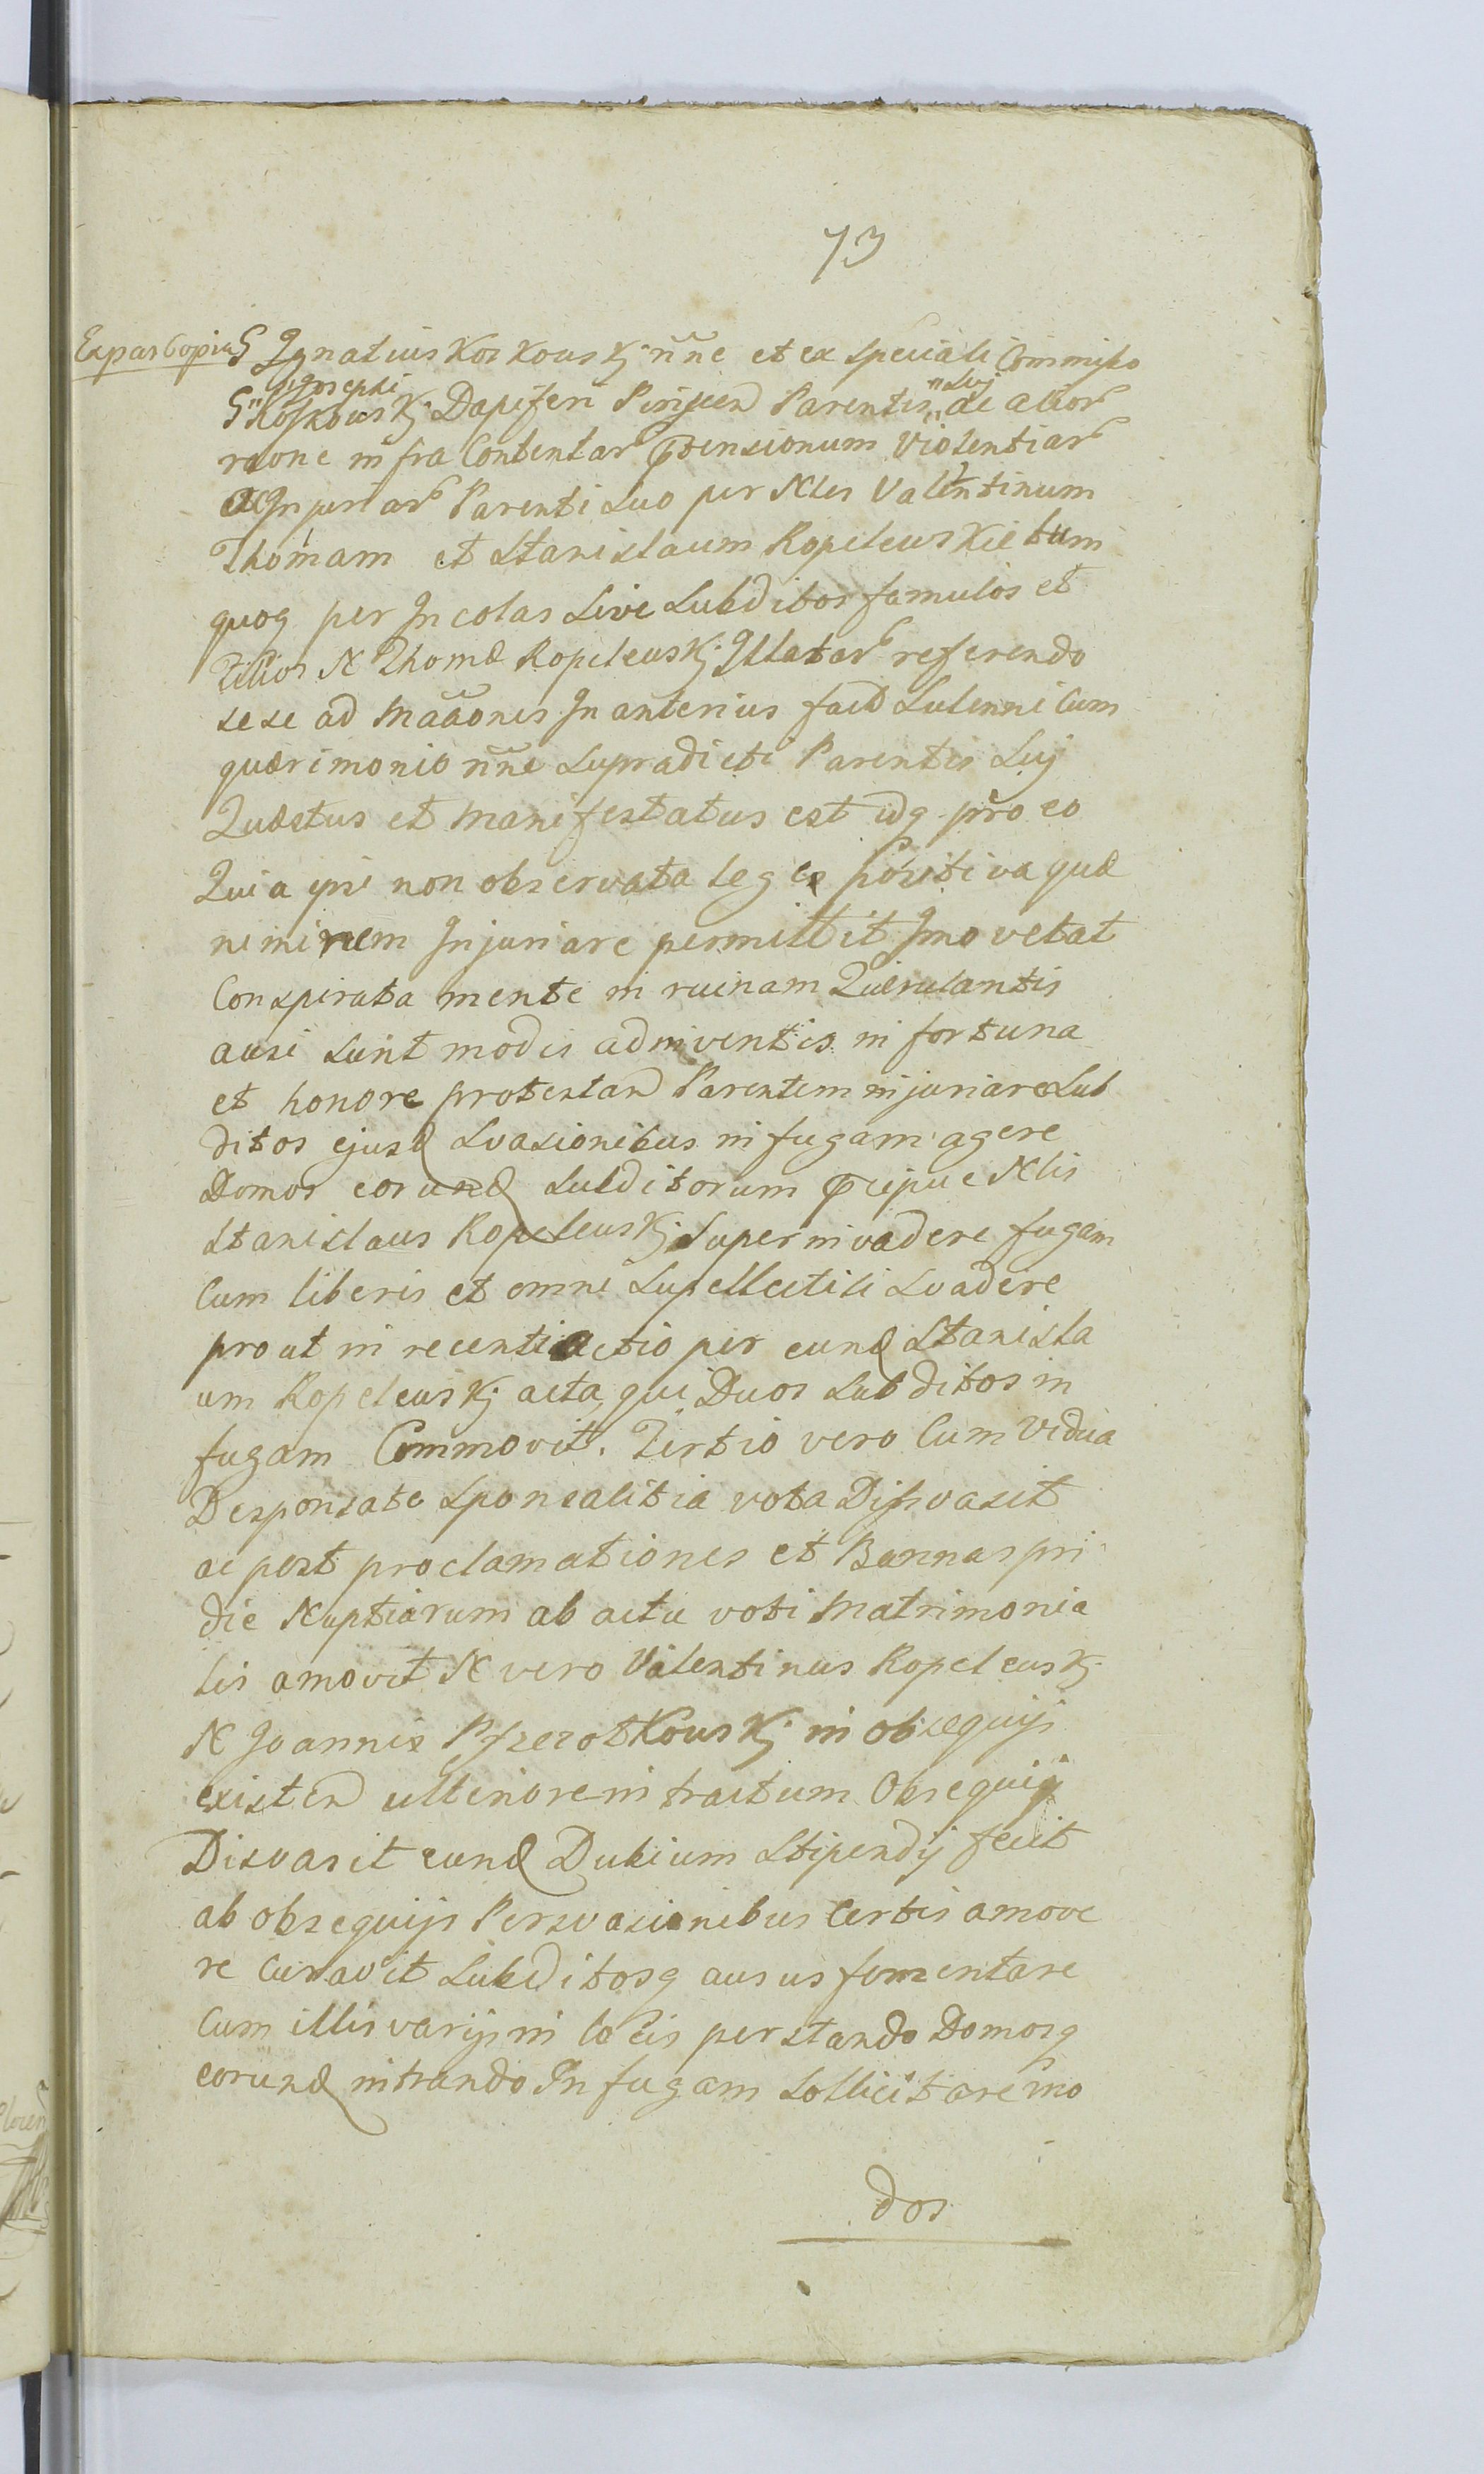 73
Expar Copia G Ignatius Koskowskj nne et ex speciali Commisso
G Josephi Koskowskj Dapiferi Parentis suj ac alior
raone infra Contentar ptensionum Violentiar
ac Injuriar Parenti suo per Nles Valentinum
Thomam et Stanislaum Ropelewskie tum
quoq per Incolas sive subditos famulos et
Filios N Thomæ Ropelewskj Illatar referendo
sese ad Maaonis In anterius faciend Sulenni Cum
quærimonio nne supradicti Parentis suj
Quæstus et Manifestatus est idq pro eo
Quia ipsi non observata lege positiva quæ
neminem Injuriare permittit Imo vetat
Conspirata mente in ruinam Quærulantis
ausi sunt modis adinventis in fortuna
et honore protestan Parentem injuriare Sub
ditos ejusd svasionibus in fugam agere
Domos eorund subditorum pcipue Nlis
Stanislaus Ropelewskj superinvadere fugam
Cum liberis et omni supellectili svadere
prout in recenti actio per eund Stanisla
um Ropelewskj acta, qui Duos subditos in
fugam Commovit. Tertio vero Cum Vidua
Desponsato sponsalitia vota Dissvasit
ac post proclamationes et Bannas pri
die Nuptiarum ab actu voti Matrimonia
lis amovit N vero Valentinus Ropelewskj
N Joannis Pszezotkowskj in obsequijs
existen ulteriorem tractum Obsequij
Disvasit eund Dubium Stipendij fecit
ab obsequijs Persvasionibus Certis amove
re Curavit subditosq ausus fomentare
Cum illis varijs in locis perstando Domosq
eorund intrando In fugam sollicitare mo
dos